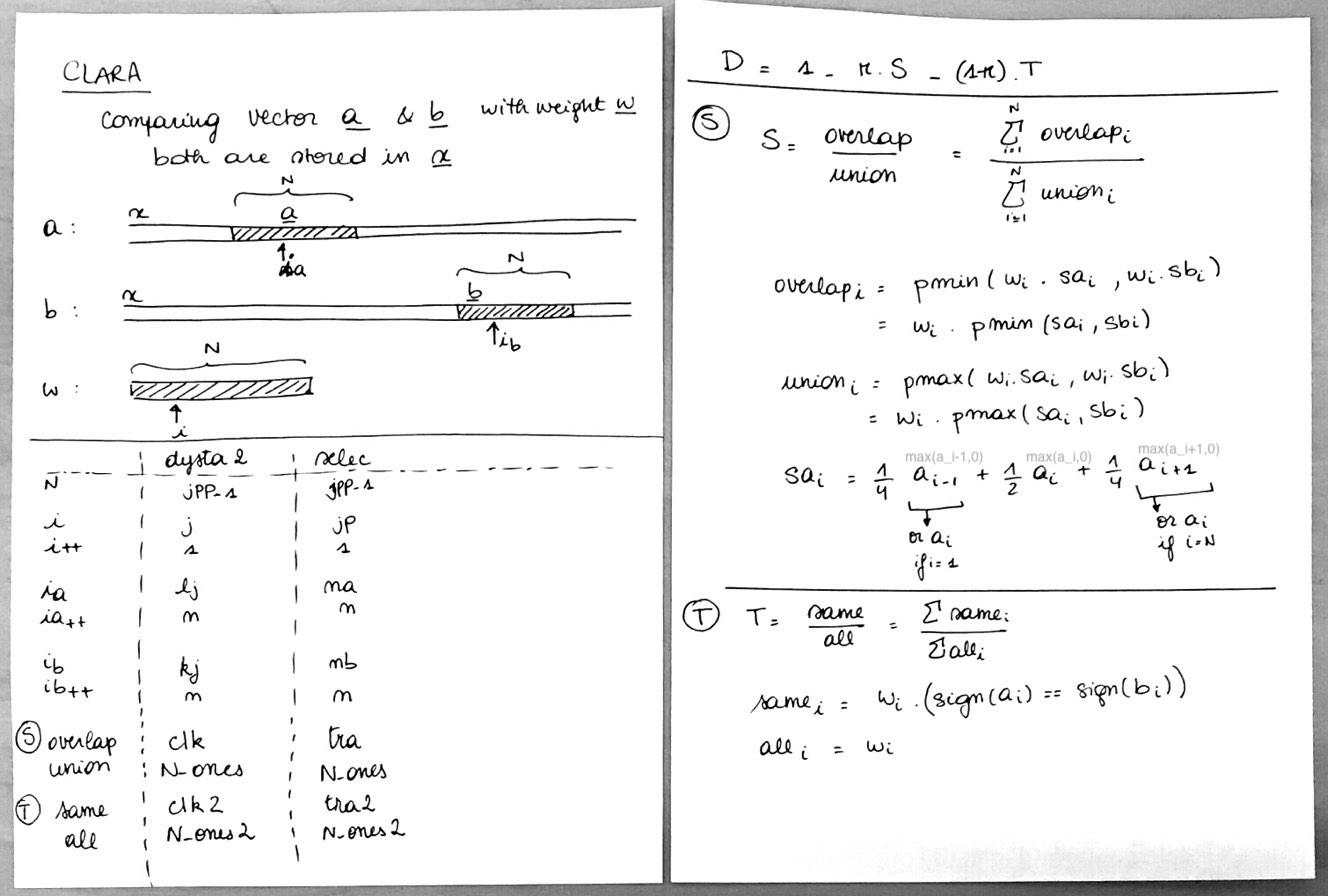 CLARA
Comparing vector a & b with weight w
both are stored in x
N
a : x a
ia
N
b : x b
ib
N
w :
i
dysta2 selec
N jpp-1 jpp-1
i j jp
i++ 1 1
ia lj na
ia++ n n
ib kj nb
ib++ n n
(S) overlap clk tra
union N_ones N_ones
(T) same clk2 tra2
all N_ones2 N_ones2
D = 1 - r.S - (1-r).T
(S)
S = overlap / union = Σ_{i=1}^{N} overlap_i / Σ_{i=1}^{N} union_i
overlap_i = pmin(w_i . sa_i , w_i . sb_i)
= w_i . pmin(sa_i , sb_i)
union_i = pmax(w_i . sa_i , w_i . sb_i)
= w_i . pmax(sa_i , sb_i)
max(a_i-1,0) max(a_i,0) max(a_i+1,0)
sa_i = 1/4 a_{i-1} + 1/2 a_i + 1/4 a_{i+1}
or a_i or a_i
if i=1 if i=N
(T) T = same / all = Σ same_i / Σ all_i
same_i = w_i . (sign(a_i) == sign(b_i))
all_i = w_i